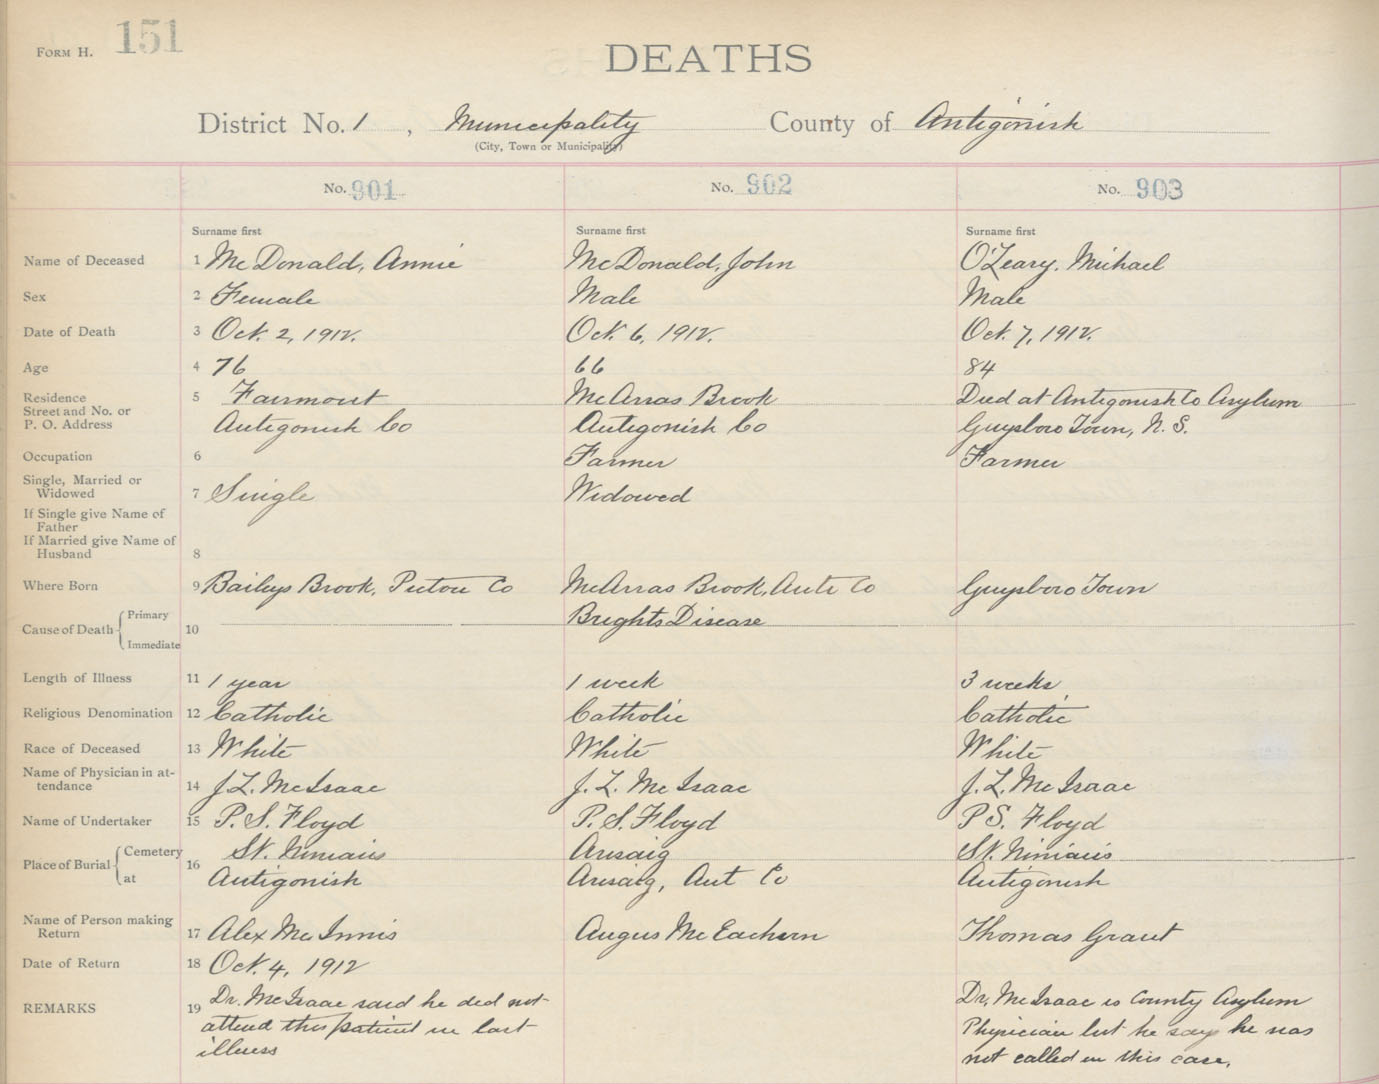 FORM H. 151
DEATHS
District No. 1, Municipality County of Antigonish
(City, Town or Municipality)
No. 901 No. 902 No. 903
Surname first Surname first Surname first
Name of Deceased 1 McDonald, Annie McDonald, John O'Leary, Michael
Sex 2 Female Male Male
Date of Death 3 Oct. 2, 1912. Oct. 6, 1912. Oct. 7, 1912.
Age 4 76 66 84
Residence 5 Fairmont McArras Brook Died at Antigonish Co Asylum
Street and No. or
P. O. Address Antigonish Co Antigonish Co Guysboro Town, N. S.
Occupation 6 Farmer Farmer
Single, Married or
Widowed 7 Single Widowed
If Single give Name of
Father
If Married give Name of
Husband 8
Where Born 9 Baileys Brook, Pictou Co McArras Brook, Anti Co Guysboro Town
Cause of Death Primary Brights Disease
10
Immediate
Length of Illness 11 1 year 1 week 3 weeks
Religious Denomination 12 Catholic Catholic Catholic
Race of Deceased 13 White White White
Name of Physician in at-
tendance 14 J. L. McIsaac J. L. McIsaac J. L. McIsaac
Name of Undertaker 15 P. S. Floyd P. S. Floyd P S. Floyd
Place of Burial Cemetery 16 St. Ninian's Arisaig St. Ninian's
at Antigonish Arisaig, Ant Co Antigonish
Name of Person making
Return 17 Alex McInnis Angus McEachern Thomas Grant
Date of Return 18 Oct. 4, 1912
REMARKS 19 Dr. McIsaac said he did not Dr. McIsaac is County Asylum
attend this patient in last Physician but he says he was
illness not called in this case.